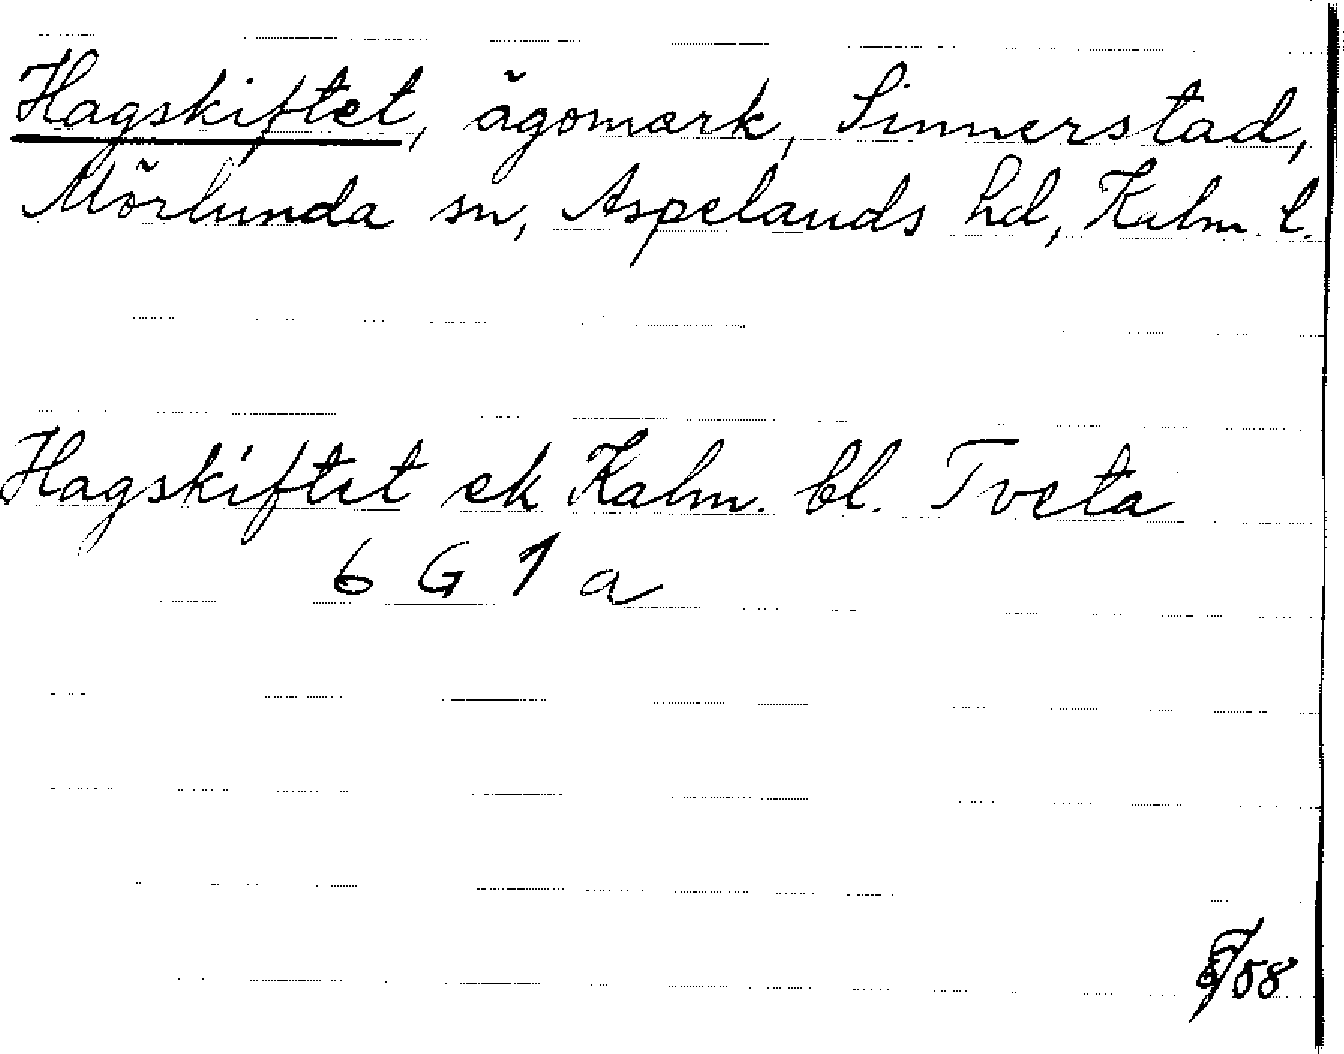 Hagskiftet, ägomark, Sinnerstad,
Mörlunda sn, Aspelands hd, Kalm. l.
Hagskiftet ek Kalm. bl. Tveta
6 G 1 a